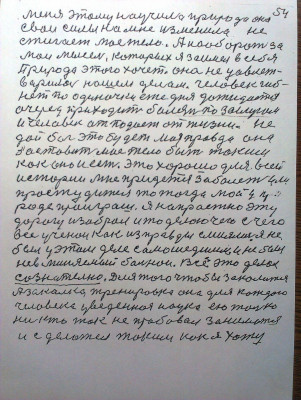 54
меня этому научила природа она
свои силы на мне изменила не
стигает мое тело. А наоборот за
мои мысли, которых я заимел в себя
Природа этого хочет она не удовлет-
варилась нашем делам. Человек гиб-
нет по одиночки еже дня дожидается
очередь приходит болезнь по заслугам
и человек отподает от жизни. не
дай бог это будет моя правда она
заставит мое тело быть таким
как оно и есть. Это хорошо для всей
истории мне придется заболеть или
простудится то тогда мой в при
роде проиграш. Я напрасно эту
дорогу избрал и то делаю чего с чего
все ученые как из правды смеялися не
был у этом деле самошедшим, и не был
невминяемый больной. Всё это делал
сознателно. Для того чтобы закалятся
А закалка тренировка она для каждого
человека уведенная наука ею только
никто так не пробовал заниматся
и сделатся таким как я хожу